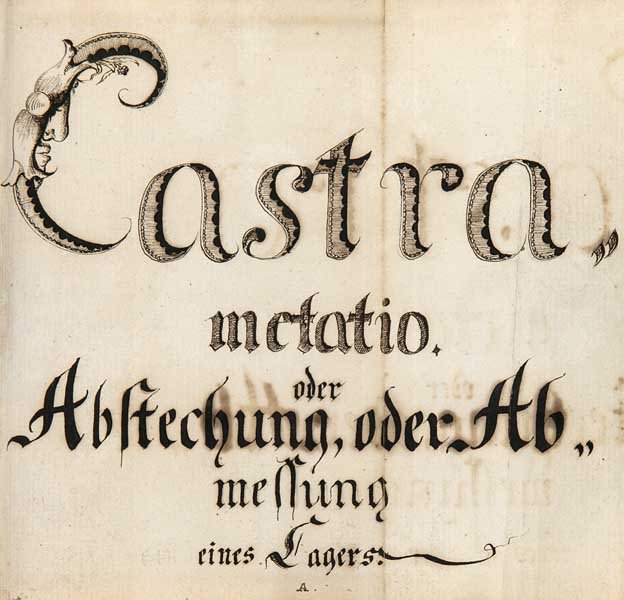 Castra„
metatio.
oder
Abstechung, oder Ab„
messung
eines Lagers.
A.